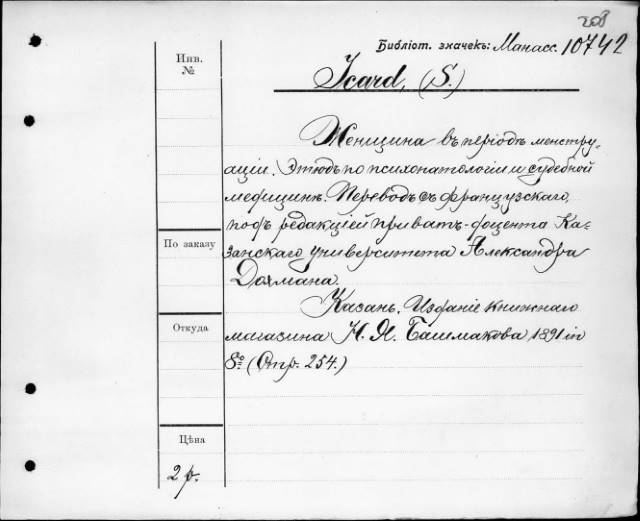 208
Библіот. значекъ: Манасс. 10742
Инв.
№
Icard, (S.)
Женщина въ періодъ менстру-
аціи. Этюдъ по психопатологіи и судебной
медицинѣ. Переводъ съ французскаго
подъ редакціей приватъ-доцента Ка-
По заказу
занскаго университета Александра
Дохмана.
Казань. Изданіе книжнаго
Откуда
магазина Н. Я. Башмакова 1891 in
8º (Стр. 254.)
Цѣна
2 р.